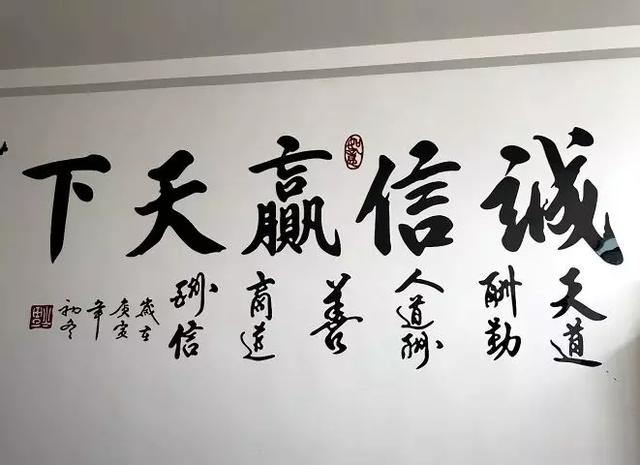 诚信赢天下
天道
酬勤
人道酬
善
商道
酬信
岁在
庚寅
年
初冬